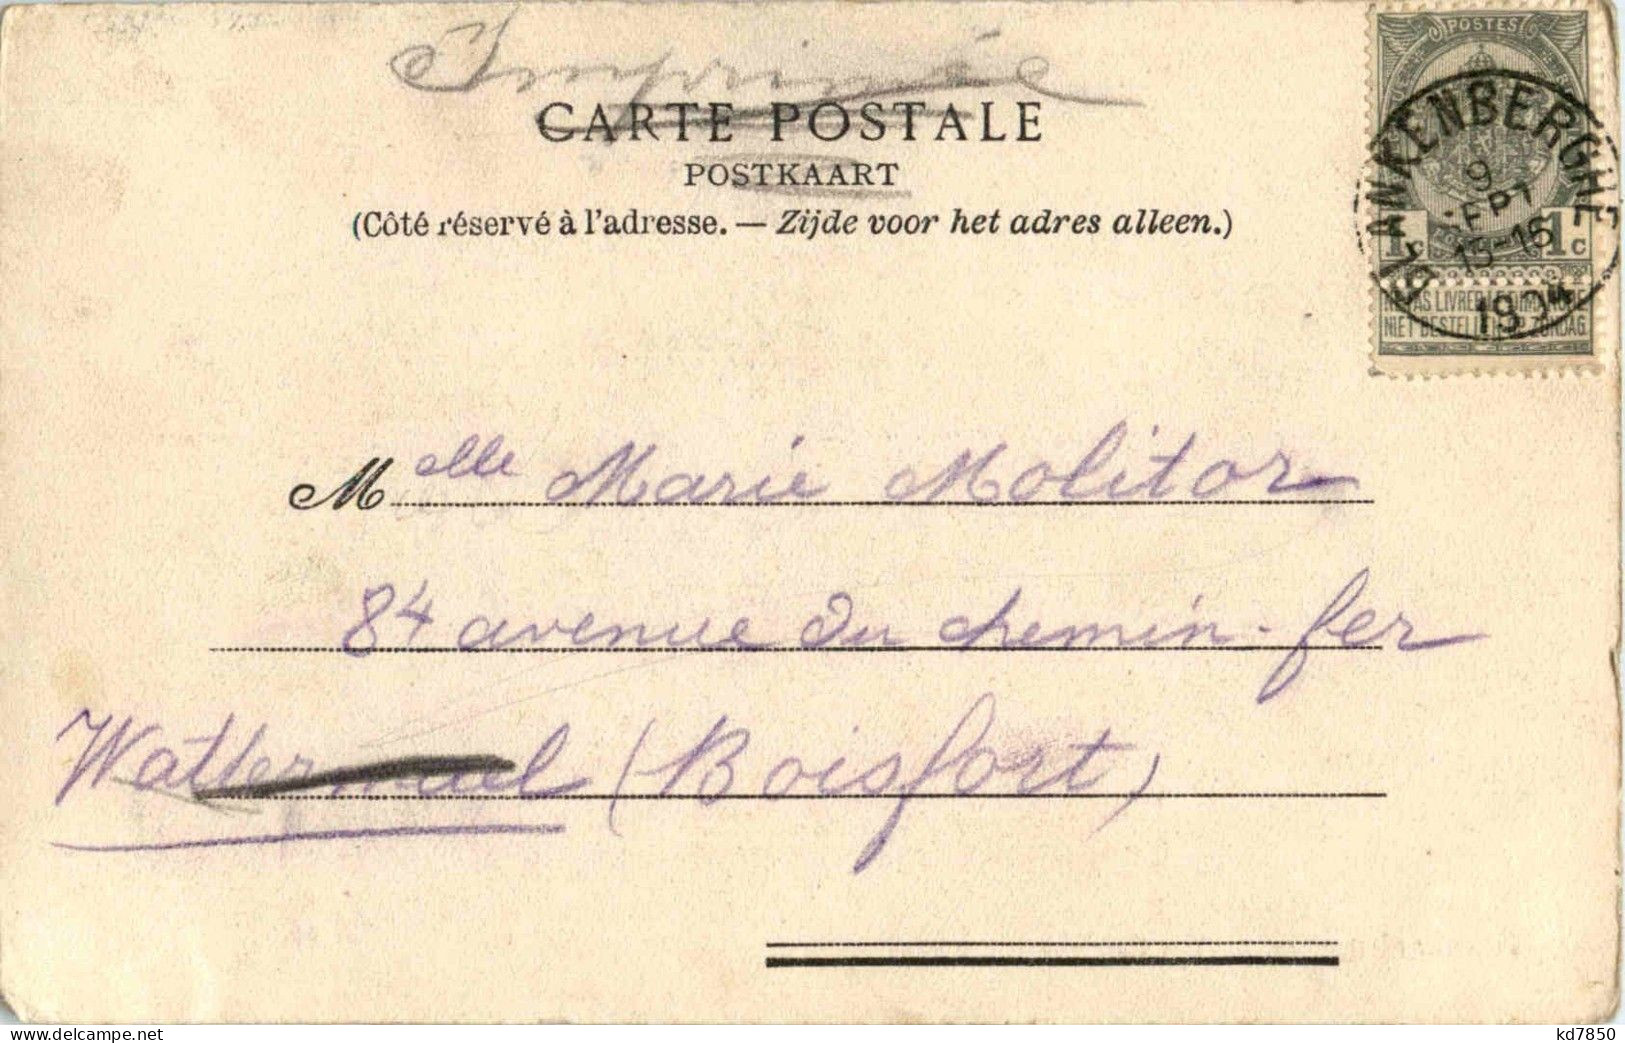 Imprimée
CARTE POSTALE
POSTKAART
(Côté réservé à l'adresse. — Zijde voor het adres alleen.)
POSTES
BLANKENBERGHE
9
SEPT
15-16
1904
1c 1c
NE PAS LIVRER LE DIMANCHE
NIET BESTELLEN OP ZONDAG
Melle Marie Molitor
84 avenue du chemin-fer
Wattermael (Boisfort)
kd7850